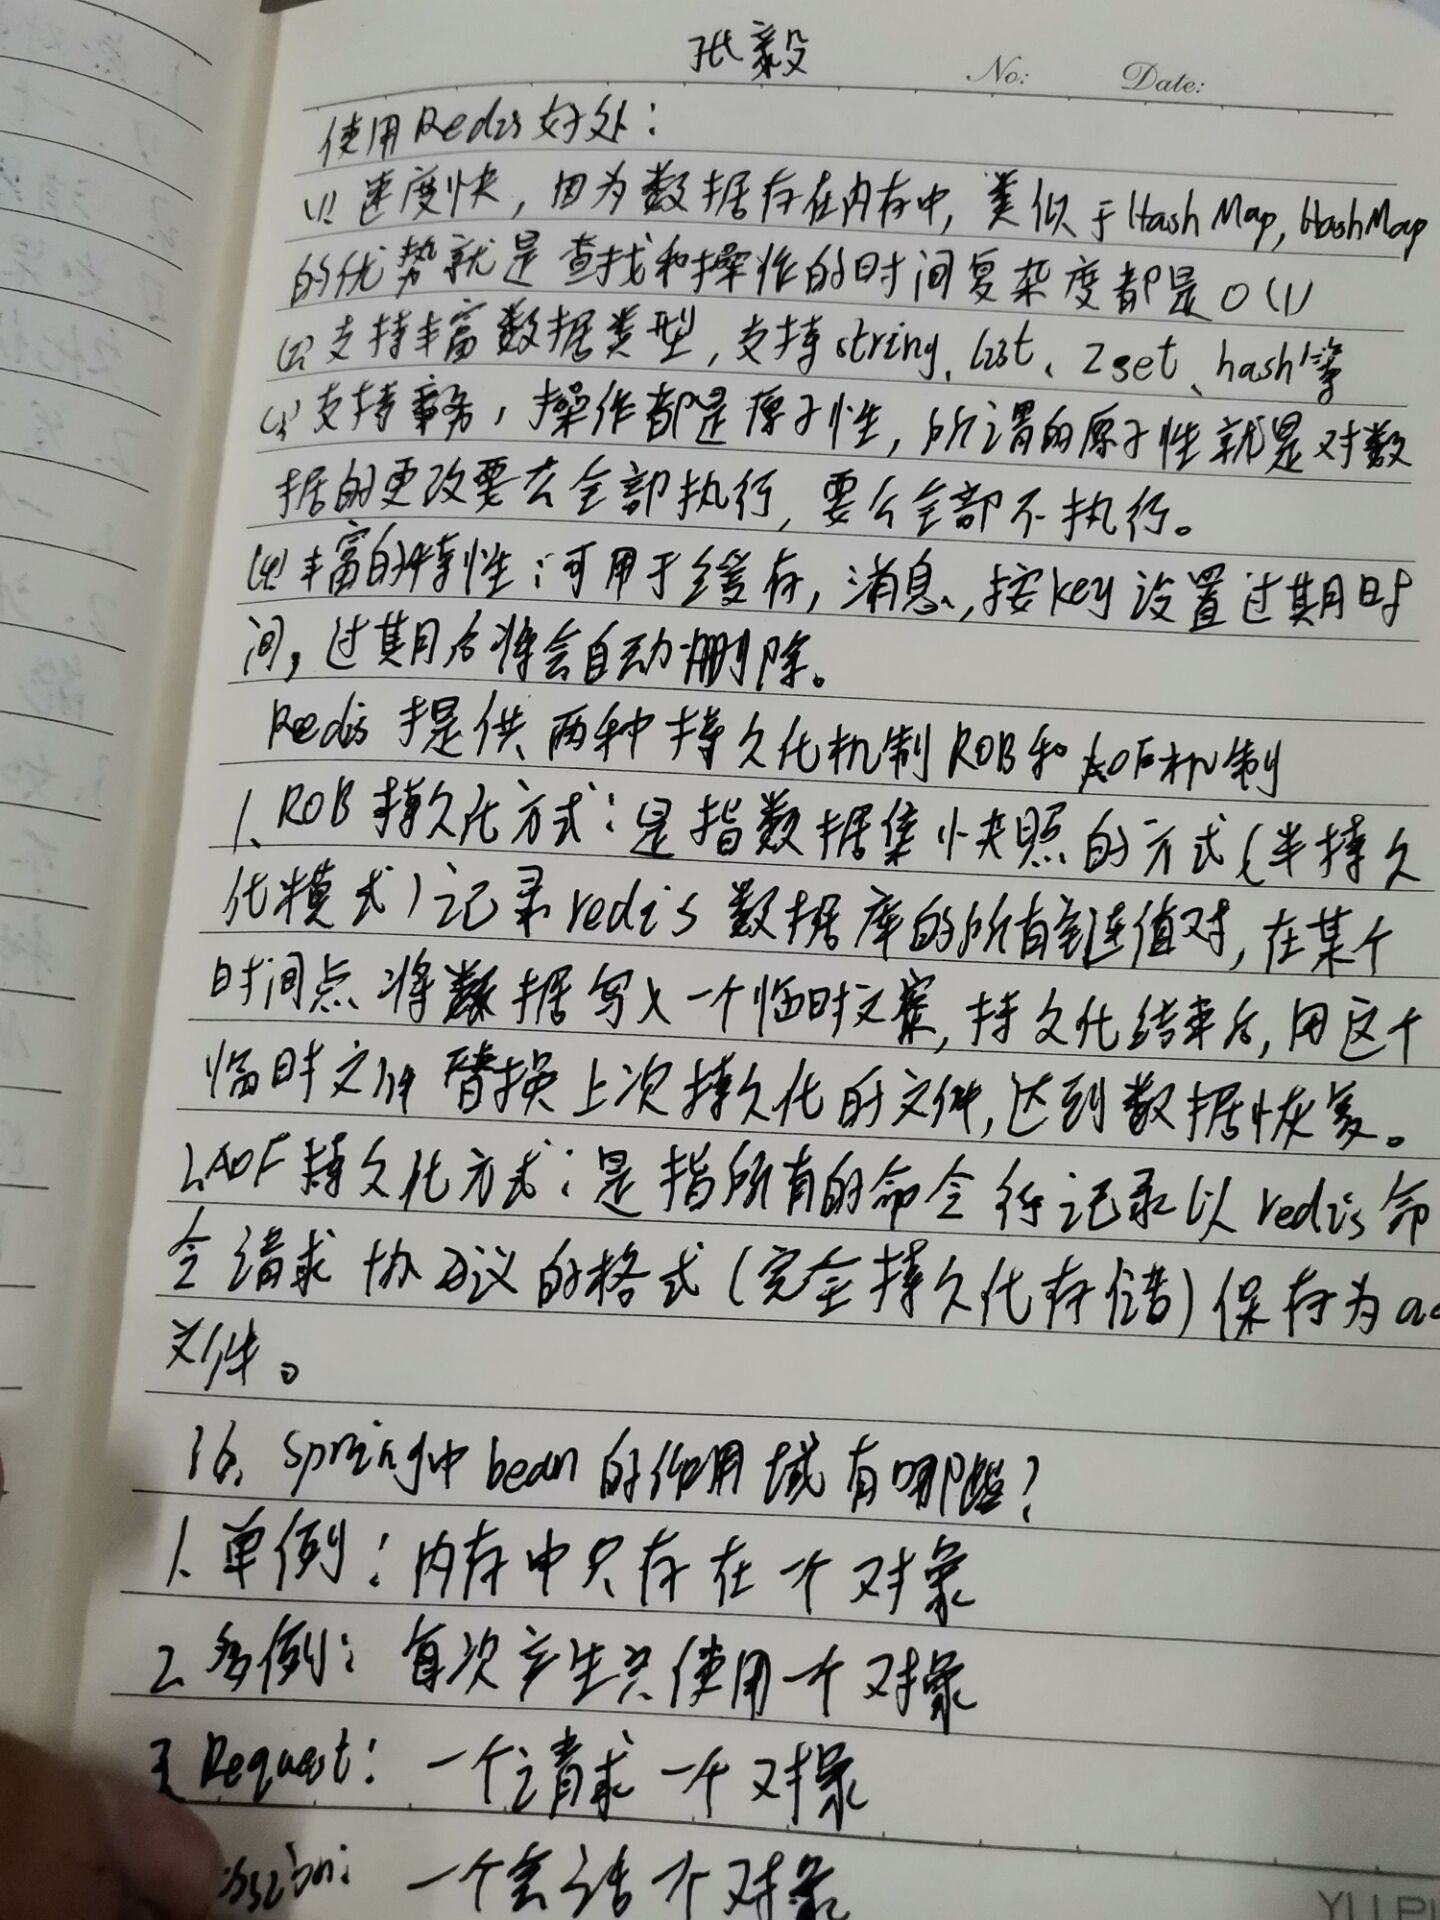 张毅
No: Date:
使用Redis好处：
(1) 速度快，因为数据存在内存中，类似于HashMap，HashMap
的优势就是查找和操作的时间复杂度都是O(1)
(2) 支持丰富数据类型，支持string、list、zset、hash等
(3) 支持事务，操作都是原子性，所谓的原子性就是对数
据的更改要么全部执行，要么全部不执行。
(4) 丰富的特性：可用于缓存，消息，按key设置过期时
间，过期后将会自动删除。
Redis提供两种持久化机制ROB和AOF机制
1、ROB持久化方式：是指数据集快照的方式(半持久
化模式)记录redis数据库的所有键值对，在某个
时间点将数据写入一个临时文案，持文化结束后，用这个
临时文件替换上次持久化的文件，达到数据恢复。
2、AOF持久化方式：是指所有的命令行记录以redis命
令请求协议的格式(完全持久化存储)保存为ao
文件。
16、Spring中bean的作用域有哪些？
1、单例：内存中只存在一个对象
2、多例：每次产生只使用一个对象
3、Request：一个请求一个对象
ssion：一个会话一个对象
YU PU